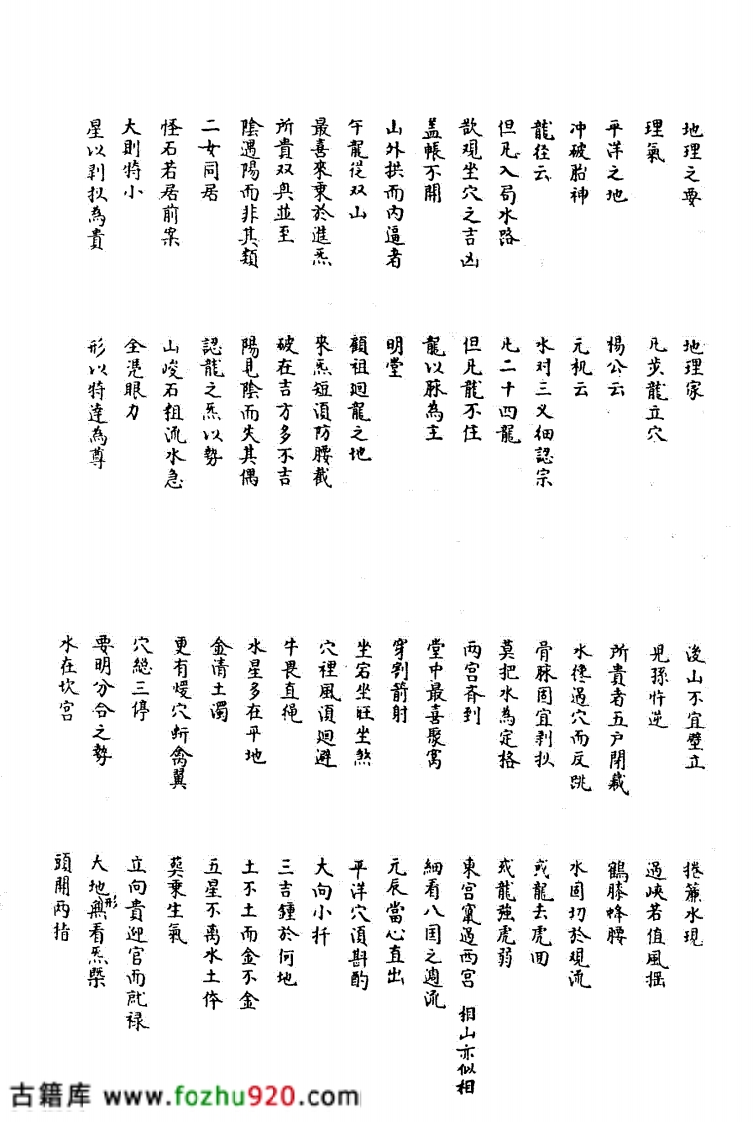 地理之要
理氣
平洋之地
冲破胎神
龍徑云
但凡入局水路
欲观坐穴之吉凶
盖帳不開
山外拱而内逼者
午龍從双山
最喜來乘於進炁
所貴双奥並至
陰遇陽而非其類
二女同居
怪石若居前案
大則特小
星以剥拟為貴
地理家
凡步龍立穴
楊公云
元机云
水对三义细認宗
凡二十四龍
但凡龍不住
龍以脉為主
明堂
顧祖廻龍之地
來炁短湏防腰截
破在吉方多不吉
陽見陰而失其偶
認龍之炁以勢
山峻石粗流水急
全凴眼力
形以特達為尊
後山不宜壁立
児孫忤逆
所貴者五户閉藏
水儘過穴而反跳
骨脉固宜剥拟
莫把水為定格
两宫斉到
堂中最喜聚窩
穿割箭射
坐宕坐旺坐煞
穴裡風湏廻避
牛畏直绳
水星多在平地
金清土濁
更有煖穴斩禽翼
穴總三停
要明分合之势
水在坎宫
捲簾水現
過峡若值風摇
鶴膝蜂腰
水固切於观流
或龍去虎回
或龍強虎弱
東宫竄過西宫 相山亦似相
細看八国之週流
元辰當心直出
平洋穴湏斟酌
大向小扦
三吉鍾於何地
土不土而金不金
五星不离水土体
葬乗生氣
立向貴迎官而就禄
大地無形看炁槩
頭開两指
古籍库 www.fozhu920.com